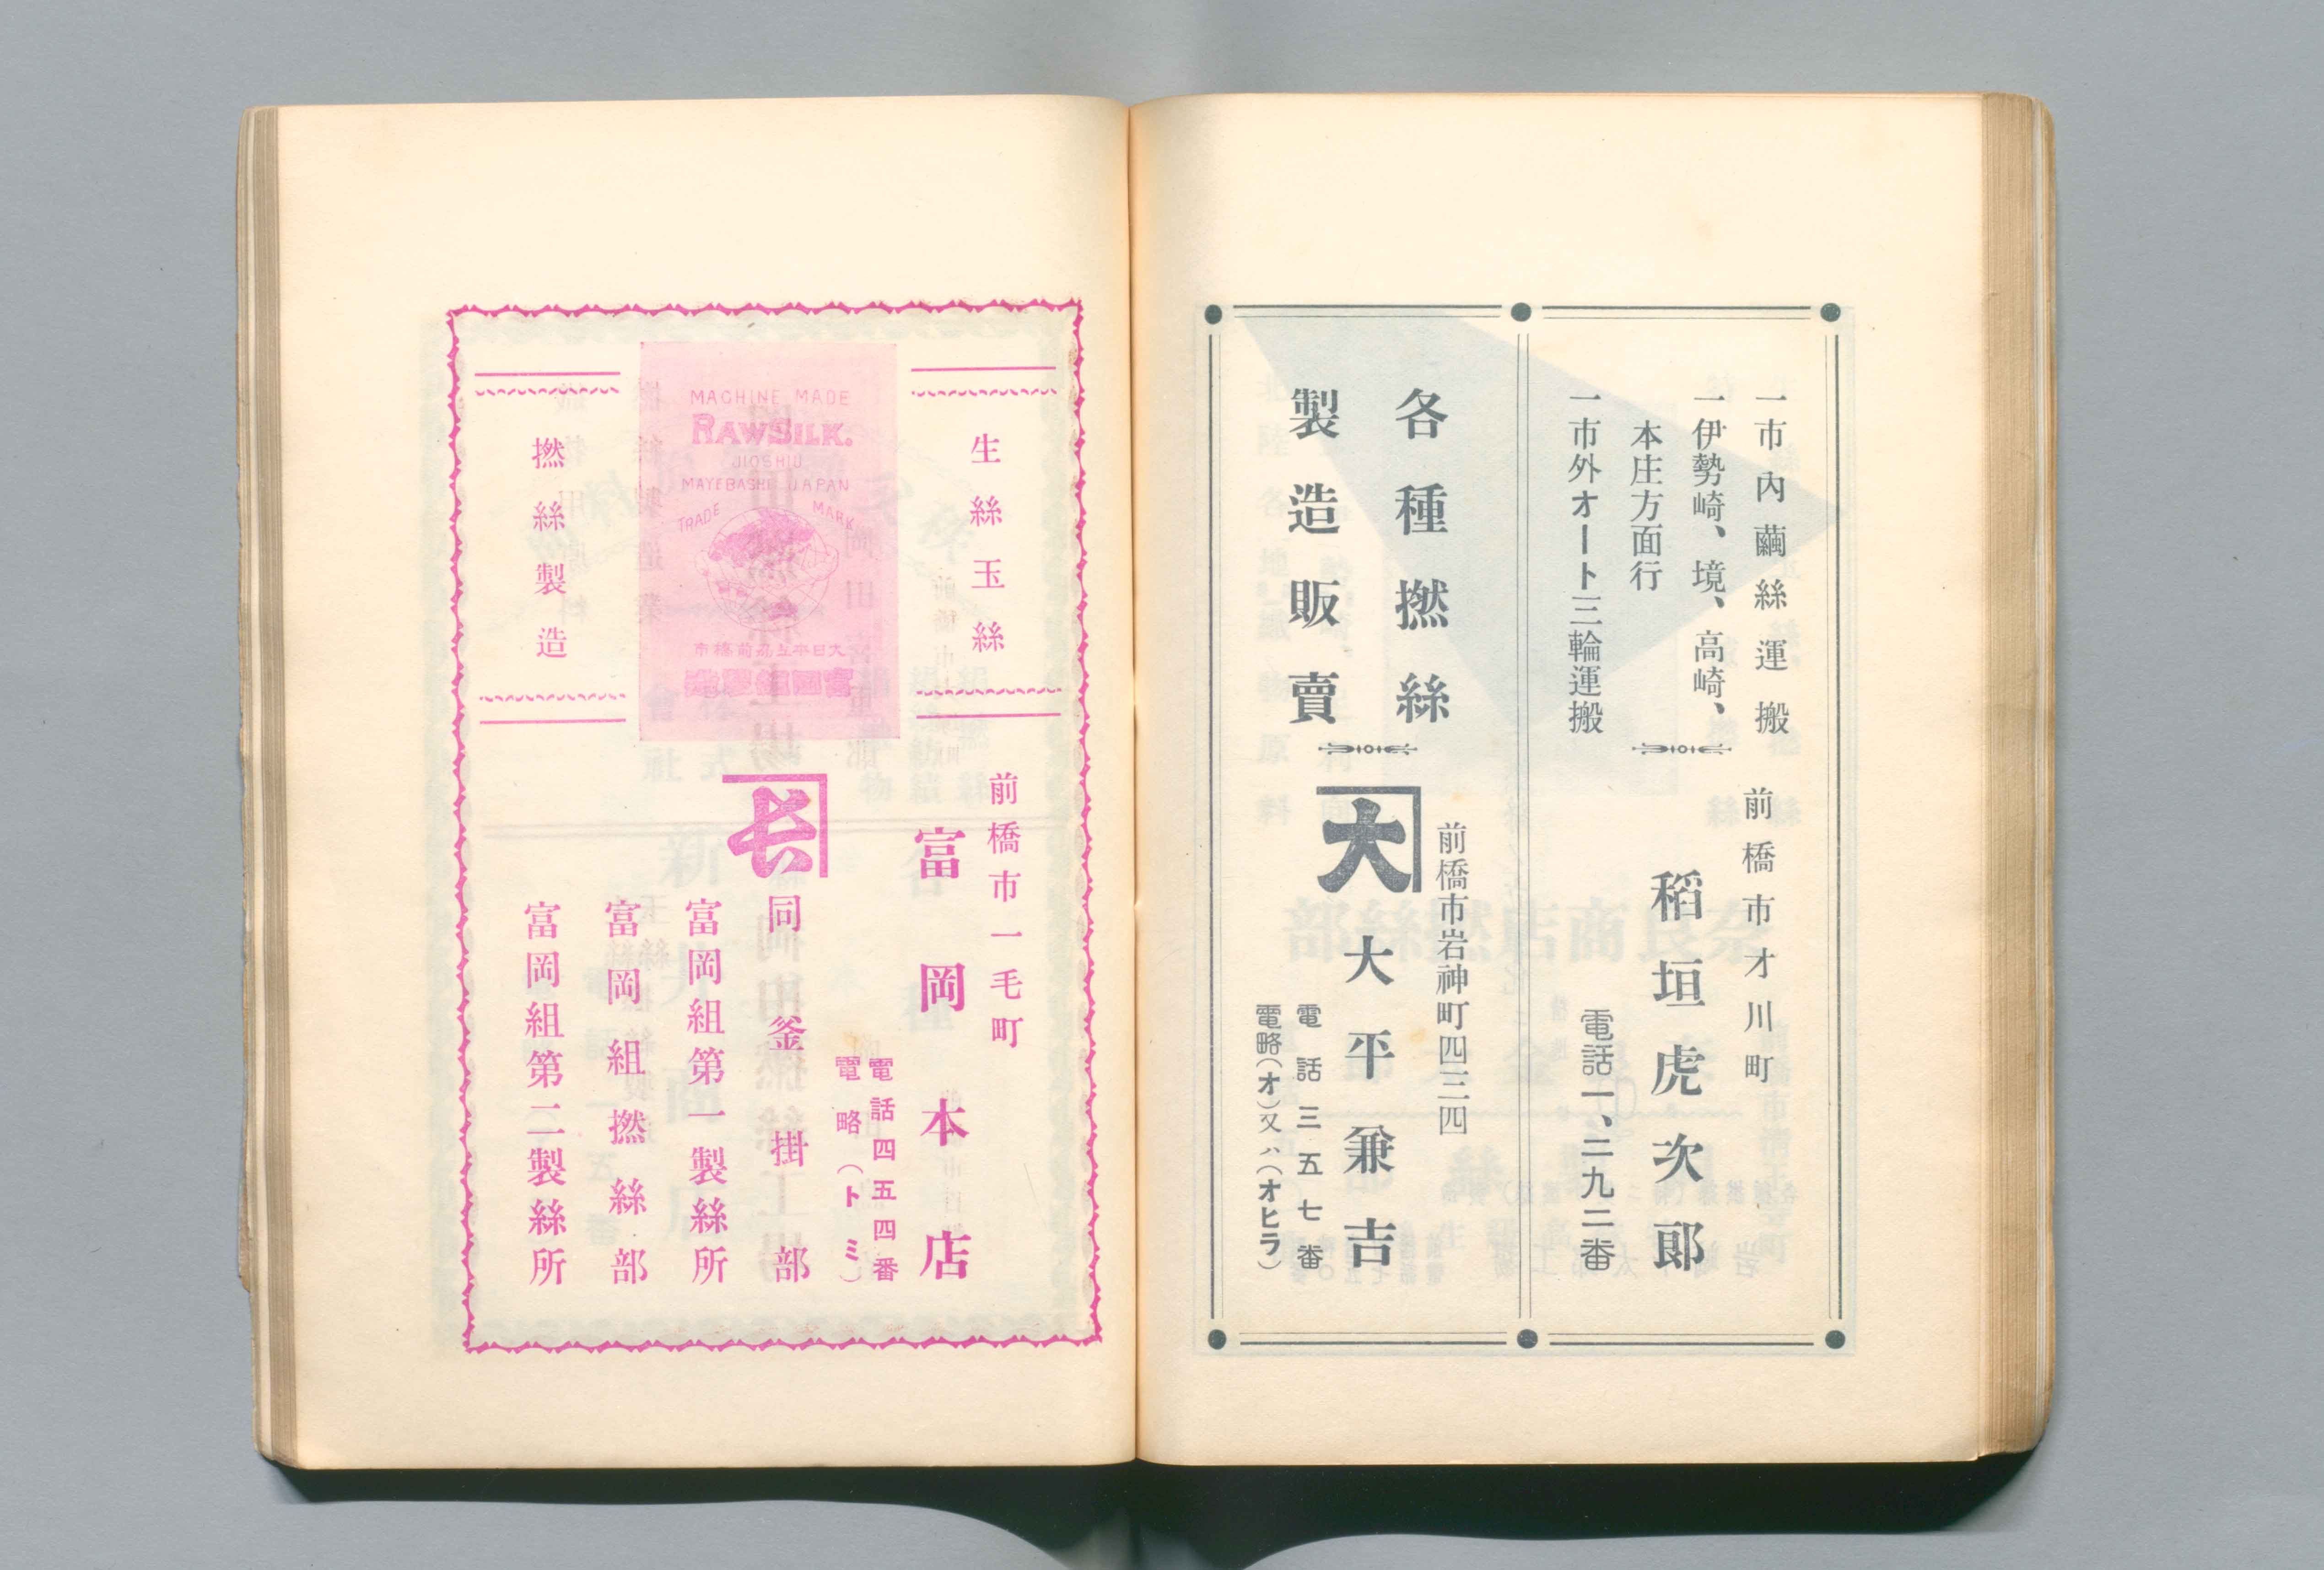 一市内繭絲運搬
一伊勢崎、境、高崎、
本庄方面行
一市外オート三輪運搬
前橋市才川町
稻垣虎次郎
電話一、二九二番
各種撚絲
製造販賣
前橋市岩神町四三四
大
大平兼吉
電話三五七番
電略(オ)又ハ(オヒラ)
生絲玉絲
MACHINE MADE
RAWSILK.
JIOSHIU
MAYEBASHI JAPAN
TRADE MARK
市橋前州上本日大
撚絲製造
前橋市一毛町
富岡本店
電話四五四番
電略(トミ)
長
同釜掛部
富岡組第一製絲所
富岡組撚絲部
富岡組第二製絲所